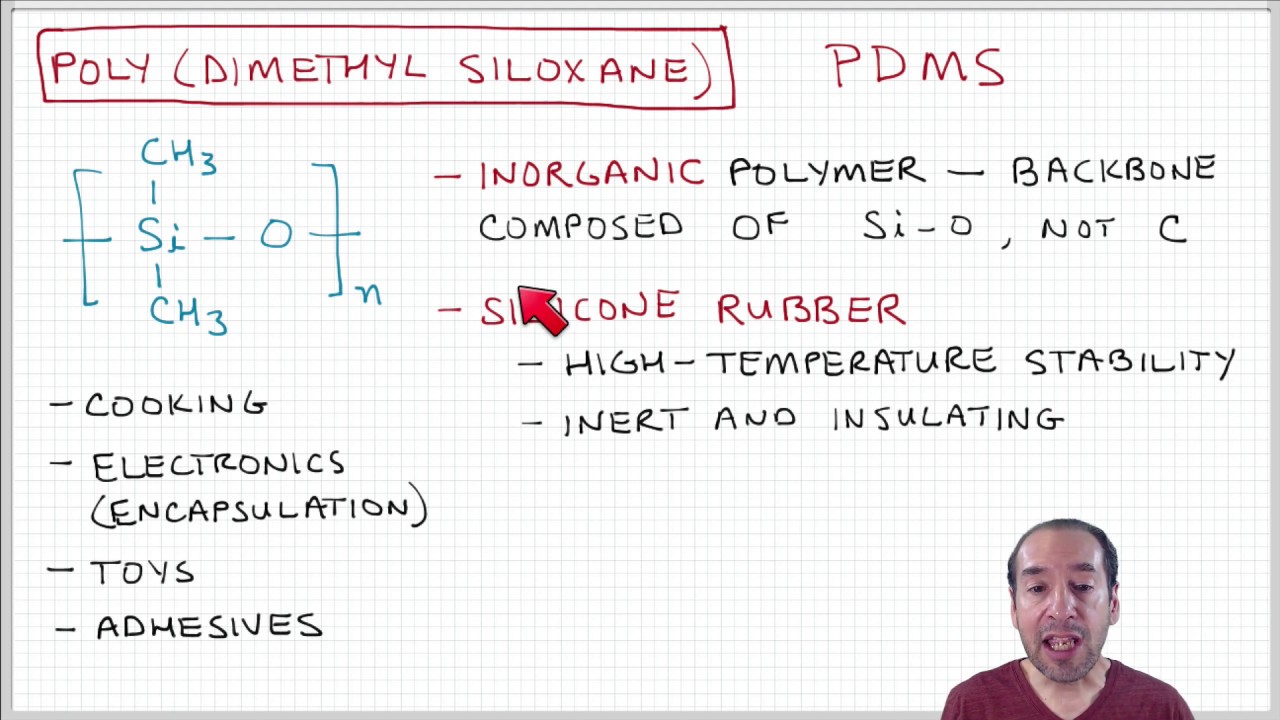 POLY (DIMETHYL SILOXANE)
PDMS
CH3
Si - O
CH3
n
- INORGANIC POLYMER - BACKBONE
COMPOSED OF Si-O, NOT C
- SILICONE RUBBER
- HIGH-TEMPERATURE STABILITY
- INERT AND INSULATING
- COOKING
- ELECTRONICS
(ENCAPSULATION)
- TOYS
- ADHESIVES